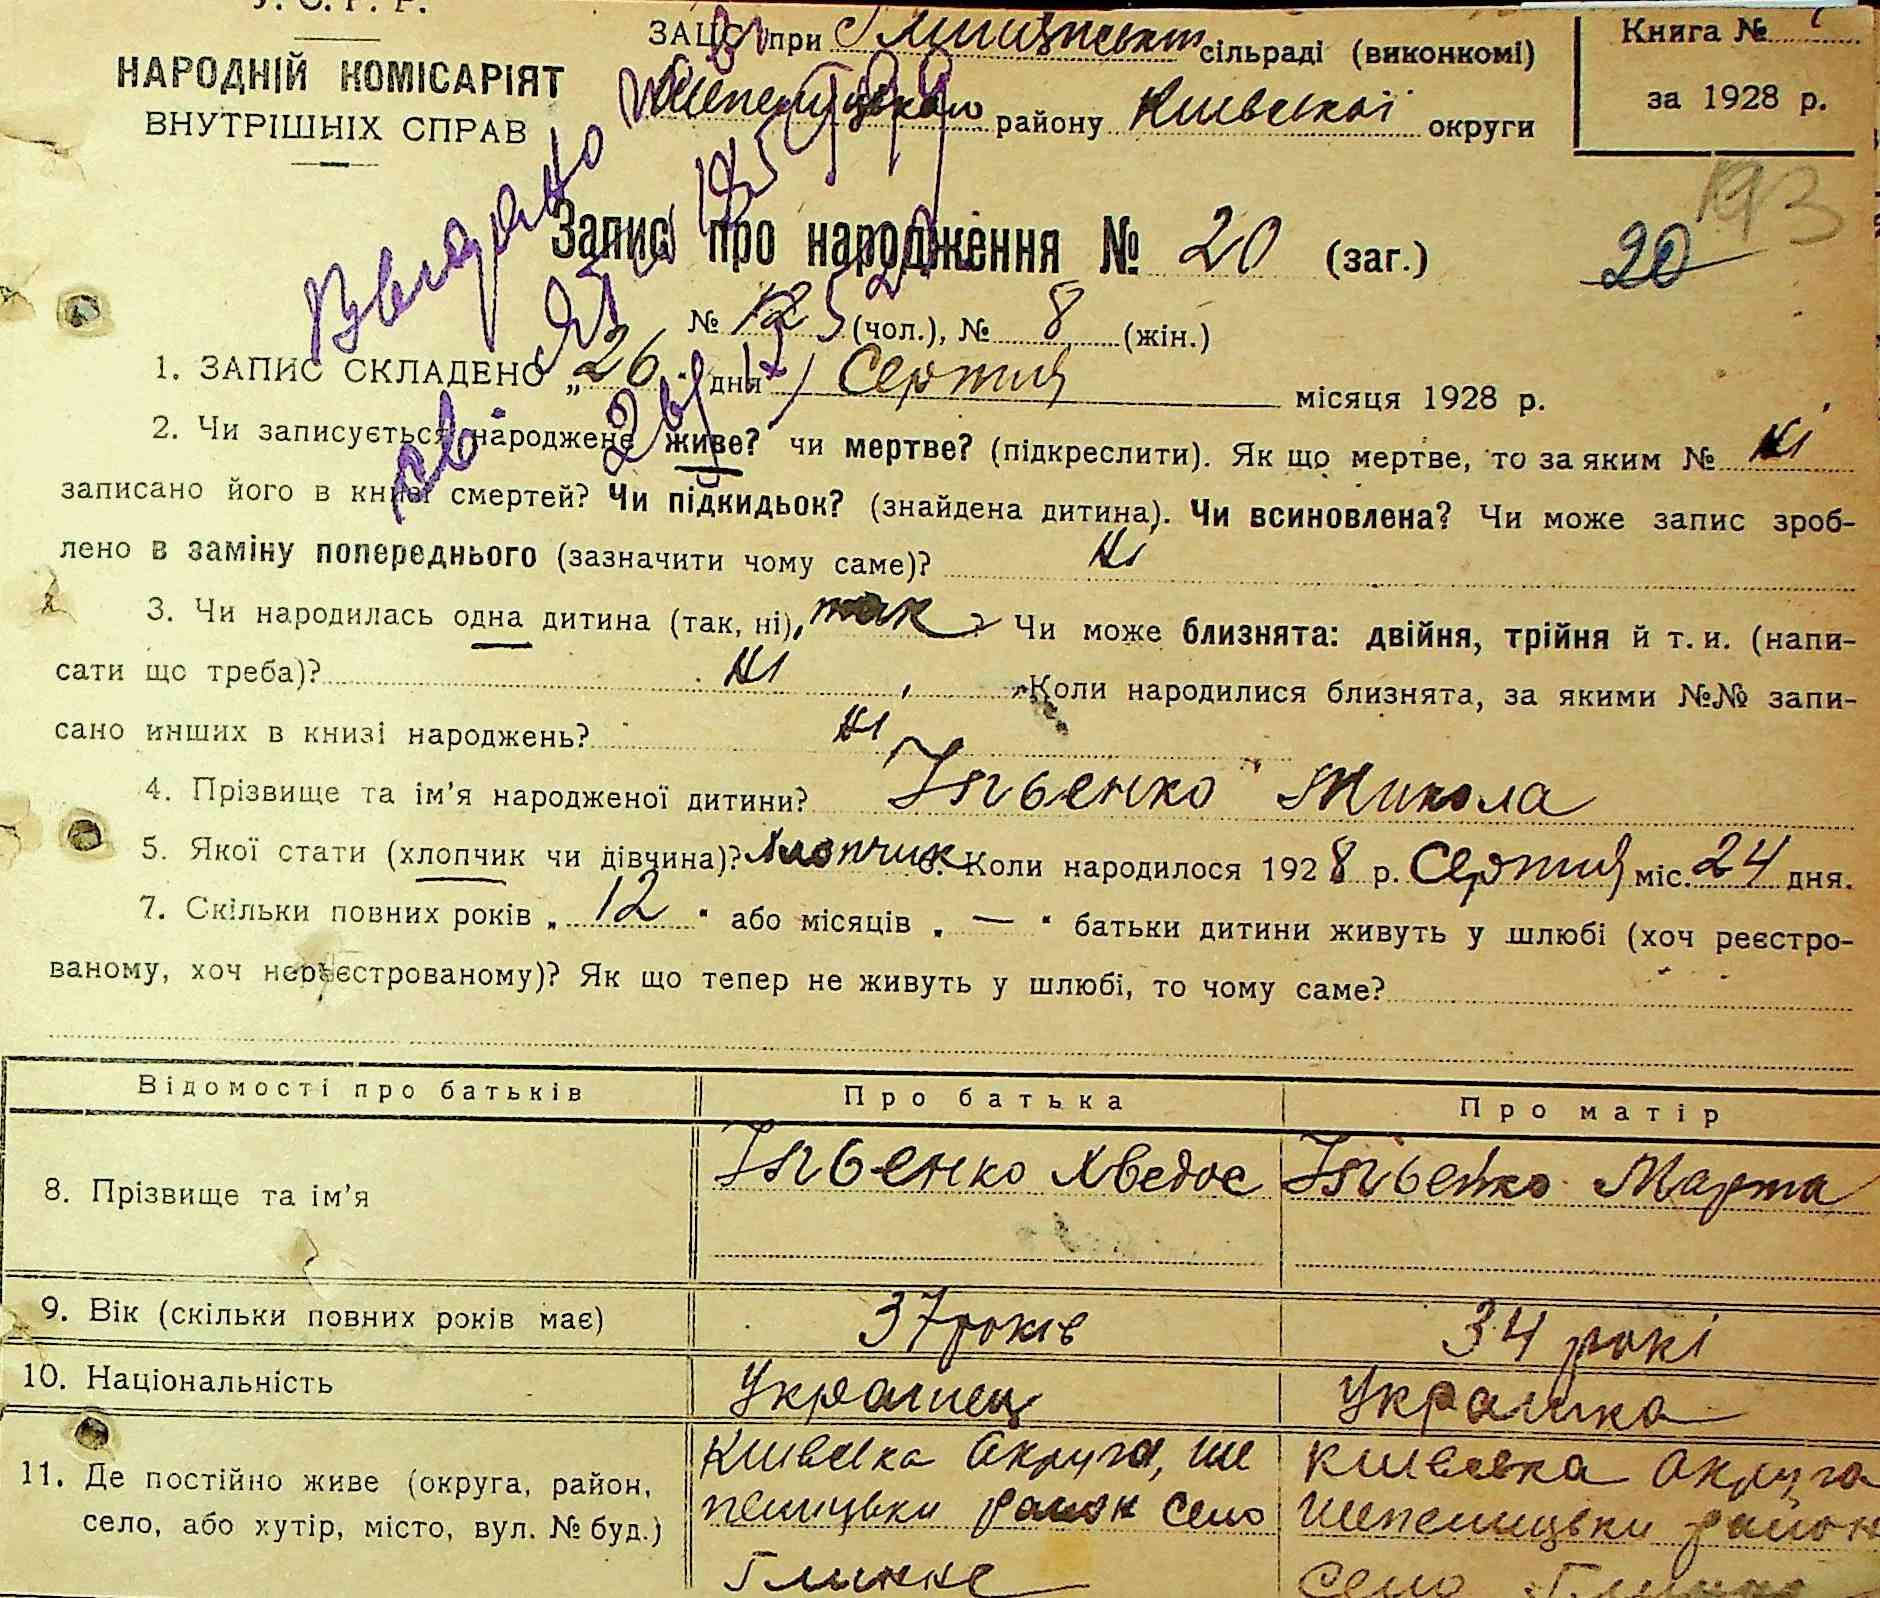 У. С. Р. Р.
НАРОДНІЙ КОМІСАРІЯТ
ВНУТРІШНІХ СПРАВ
ЗАЦС при сільраді (виконкомі)
району Київської округи
Книга №
за 1928 р.
193
Видано
Запис про народження № 20 (заг.)
20
№ 12 (чол.), № 8 (жін.)
1. ЗАПИС СКЛАДЕНО „26“ дня Серпня місяця 1928 р.
2. Чи записується народжене живе? чи мертве? (підкреслити). Як що мертве, то за яким № ні
записано його в книзі смертей? Чи підкидьок? (знайдена дитина). Чи всиновлена? Чи може запис зроб-
лено в заміну попереднього (зазначити чому саме)? ні
3. Чи народилась одна дитина (так, ні), так? Чи може близнята: двійня, трійня й т. и. (напи-
сати що треба)? ні Коли народилися близнята, за якими №№ запи-
сано инших в книзі народжень? ні
4. Прізвище та ім'я народженої дитини? Ільєнко Микола
5. Якої стати (хлопчик чи дівчина)? Хлопчик 6. Коли народилося 1928 р. Серпня міс. 24 дня.
7. Скільки повних років „12“ або місяців „—“ батьки дитини живуть у шлюбі (хоч реєстро-
ваному, хоч нереєстрованому)? Як що тепер не живуть у шлюбі, то чому саме?
Відомості про батьків Про батька Про матір
8. Прізвище та ім'я Ільєнко Хведос Ільєнко Марта
9. Вік (скільки повних років має) 37 років 34 рокі
10. Національність Українец Українка
11. Де постійно живе (округа, район, Київска Округа, Ше Київска Округа
село, або хутір, місто, вул. № буд.) пелицьки район село Шепелицьки район
Глинне село Глинне